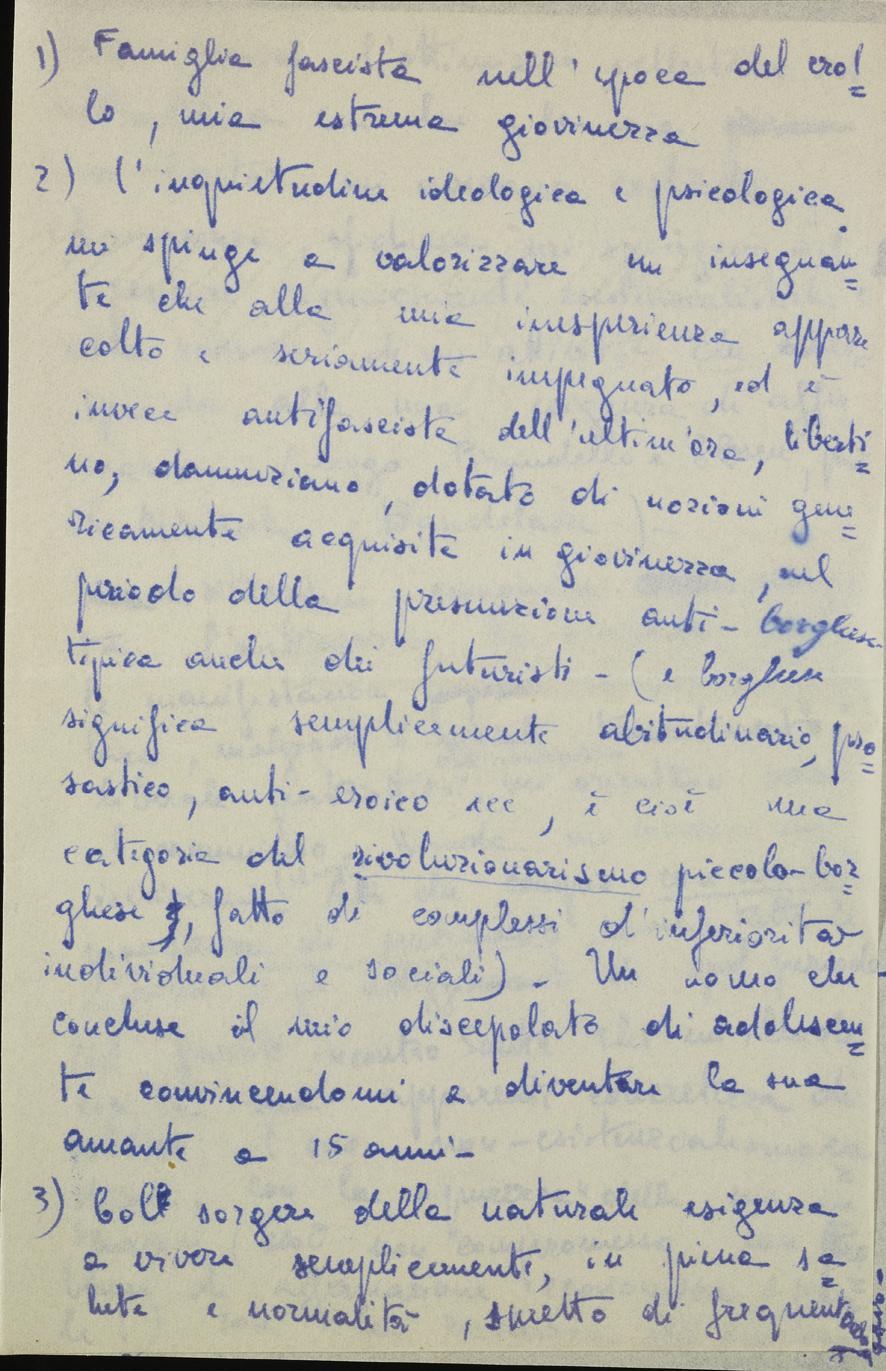 1) Famiglia fascista nell'epoca del crol=
lo, mia estrema giovinezza
2) L'inquietudine ideologica e psicologica
mi spinge a valorizzare un insegnan=
te che alla mia inesperienza appare
colto e seriamente impegnato, ed è
invece antifascista dell'ultim'ora, liberti=
no, dannunziano, dotato di nozioni gene=
ricamente acquisite in giovinezza, nel
periodo della presunzione anti-borghese
tipica anche dei futuristi - (e borghese
significa semplicemente abitudinario, pro=
sastico, anti-eroico ecc, è cioè una
categoria del rivoluzionarismo piccolo-bor=
ghese, fatto di complessi d'inferiorità
individuali e sociali) - Un uomo che
concluse il mio discepolato di adolescen=
te convincendomi a diventare la sua
amante a 15 anni -
3) Col sorgere della naturale esigenza
a vivere semplicemente, in piena sa=
lute e normalità, smetto di frequentare